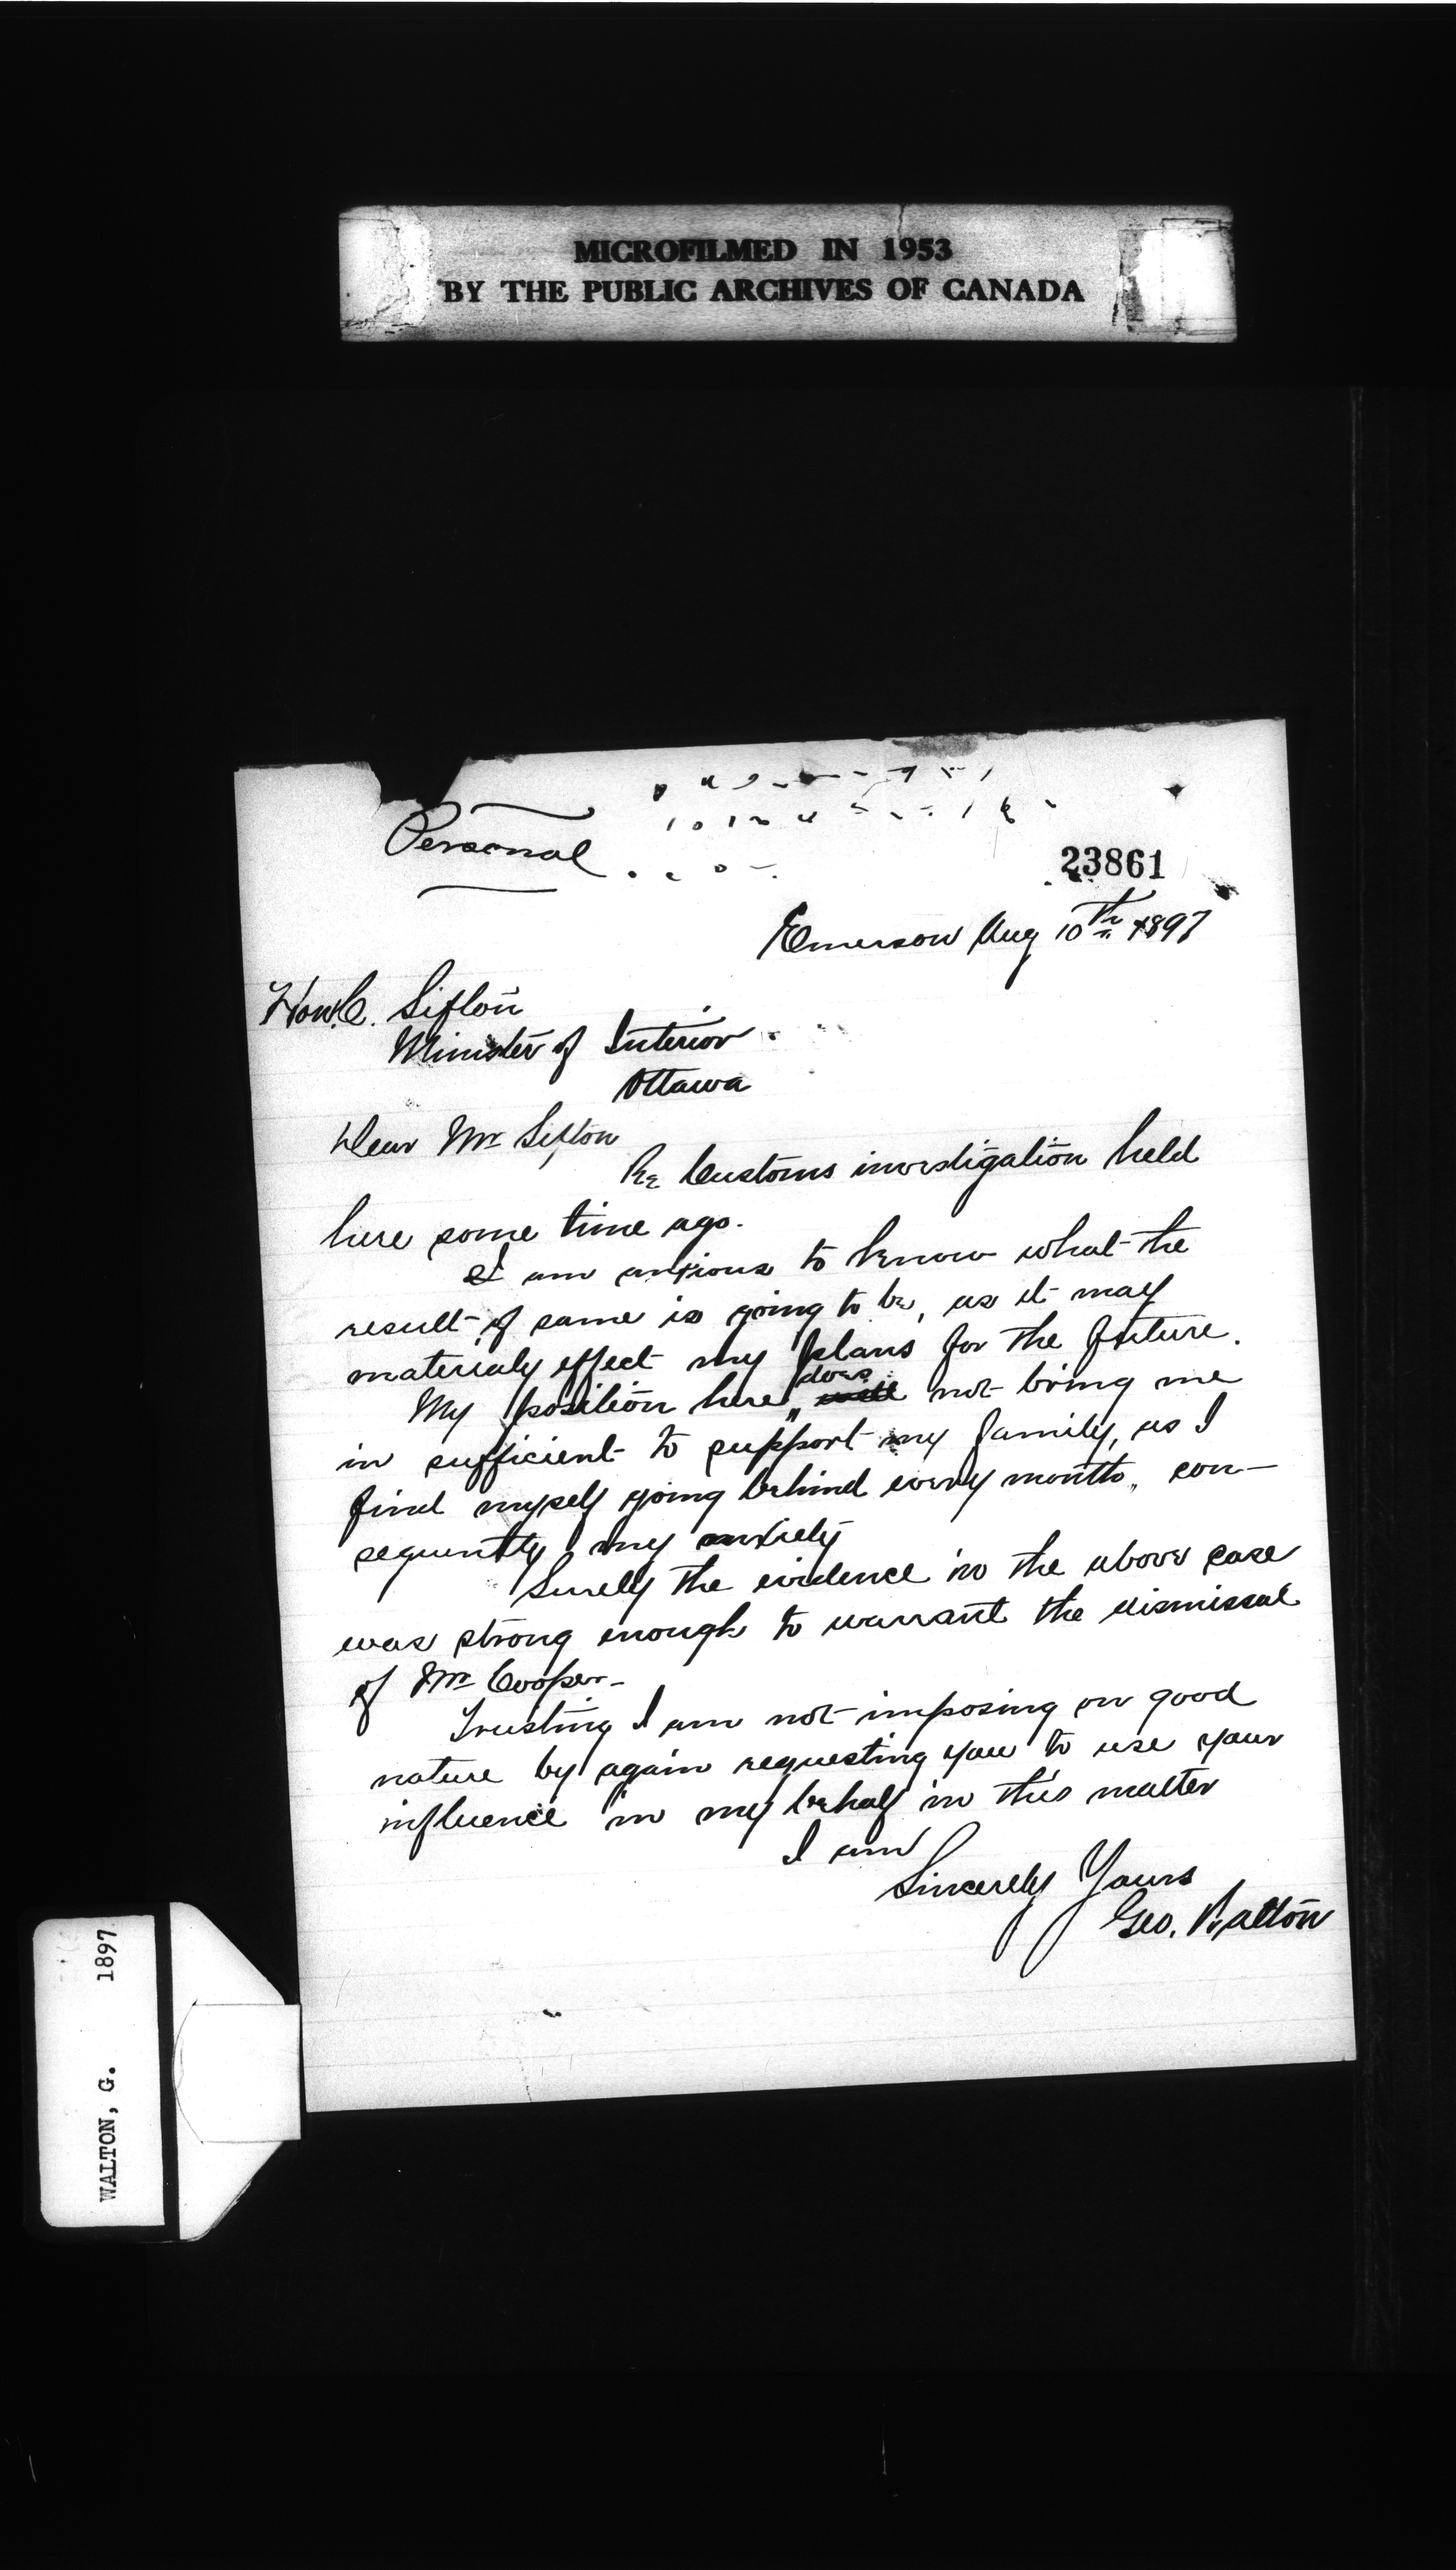 MICROFILMED IN 1953
BY THE PUBLIC ARCHIVES OF CANADA
Personal
23861
Emerson Aug 10th 1897
Hon. C. Sifton
Minister of Interior
Ottawa
Dear Mr Sifton
Re Customs investigation held
here some time ago.
I am anxious to know what the
result of same is going to be, as it may
materialy effect my plans for the future.
My position here does not bring me
in sufficient to support my family, as I
find myself going behind every month, con-
sequently my anxiety
Surely the evidence in the above case
was strong enough to warrant the dismissal
of Mr Cooper-
Trusting I am not imposing on good
nature by again requesting you to use your
influence in my behalf in this matter
I am
Sincerely Yours
Geo. Walton
WALTON, G. 1897